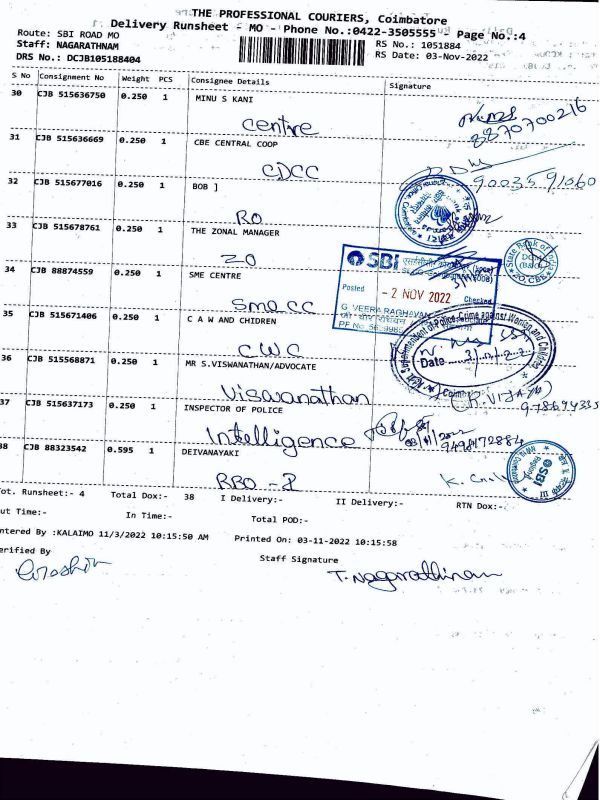 THE PROFESSIONAL COURIERS, Coimbatore
Delivery Runsheet - MO - Phone No.:0422-3505555 - Page No.:4
Route: SBI ROAD MO
Staff: NAGARATHNAM
DRS No.: DCJB105188404
RS No.: 1051884
RS Date: 03-Nov-2022
S No Consignment No Weight PCS Consignee Details Signature
30 CJB 515636750 0.250 1 MINU S KANI
centre
8870700216
31 CJB 515636669 0.250 1 CBE CENTRAL COOP
CDCC
90035 91060
32 CJB 515677016 0.250 1 BOB ]
RO
33 CJB 515678761 0.250 1 THE ZONAL MANAGER
ZO
34 CJB 88874559 0.250 1 SME CENTRE
SMECC
SBI
Posted - 2 NOV 2022 Checked
G VEERA RAGHAVAN
State Bank of India
35 CJB 515671406 0.250 1 C A W AND CHIDREN
CWC
Superintendent of Police, Crime against Women and Children
Date
36 CJB 515568871 0.250 1 MR S.VISWANATHAN/ADVOCATE
Visavanathan
37 CJB 515637173 0.250 1 INSPECTOR OF POLICE
Intelligence
9498172884
38 CJB 88323542 0.595 1 DEIVANAYAKI
RBO - 2
SBI
Tot. Runsheet:- 4 Total Dox:- 38 I Delivery:- II Delivery:- RTN Dox:-
Out Time:- In Time:- Total POD:-
Entered By :KALAIMO 11/3/2022 10:15:50 AM Printed On: 03-11-2022 10:15:58
Verified By Staff Signature
T. Nagarathinam